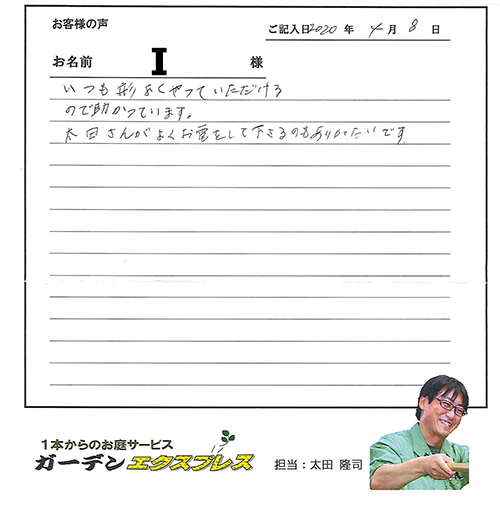 お客様の声
ご記入日2020年 4月 8日
お名前 I 様
いつも形よくやっていただける
ので助かっています。
太田さんがよくお電をして下さるのもありがたいです
1本からのお庭サービス
ガーデンエクスプレス
担当：太田 隆司